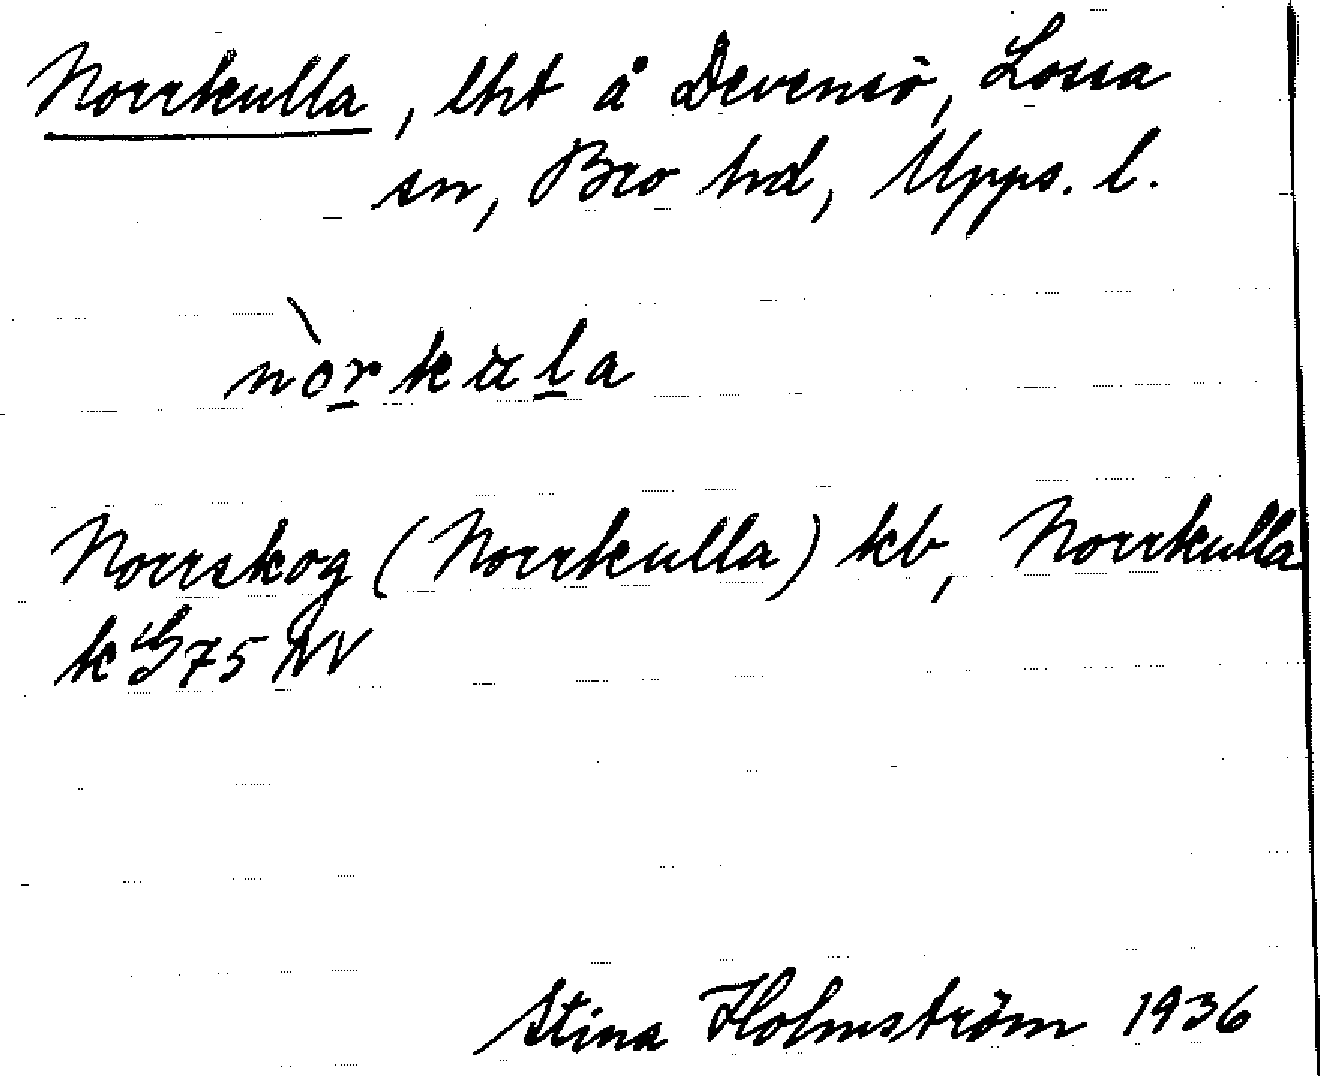 Norrkulla, lht å Devensö, Lossa
sn, Bro hd, Upps. l.
nòrkula
Norrskog (Norrkulla) kb, Norrkulla
k G75 NV
Stina Holmström 1936